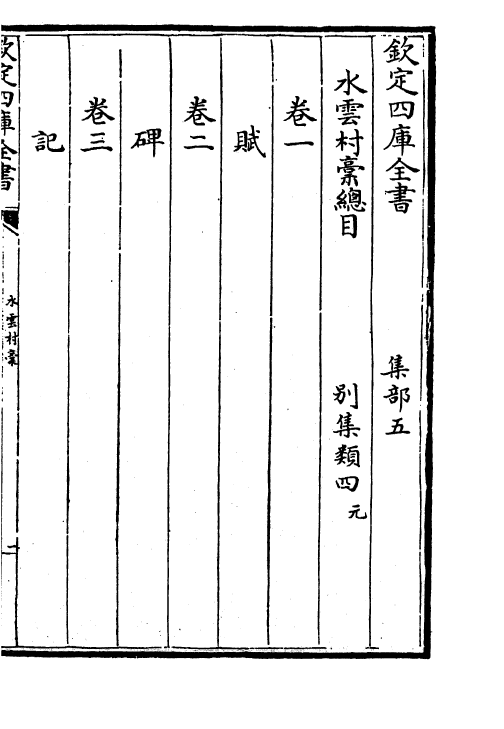 欽定四庫全書　集部五
水雲村藳總目　別集類四元
卷一
賦
卷二
碑
卷三
記
欽定四庫全書　水雲村藳　二